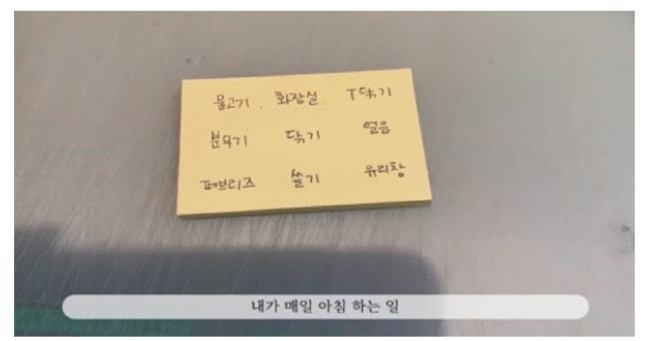 물고기, 화장실, T닦기
분무기 닦기 얼음
페브리즈 쓸기 유리창
내가 매일 아침 하는 일